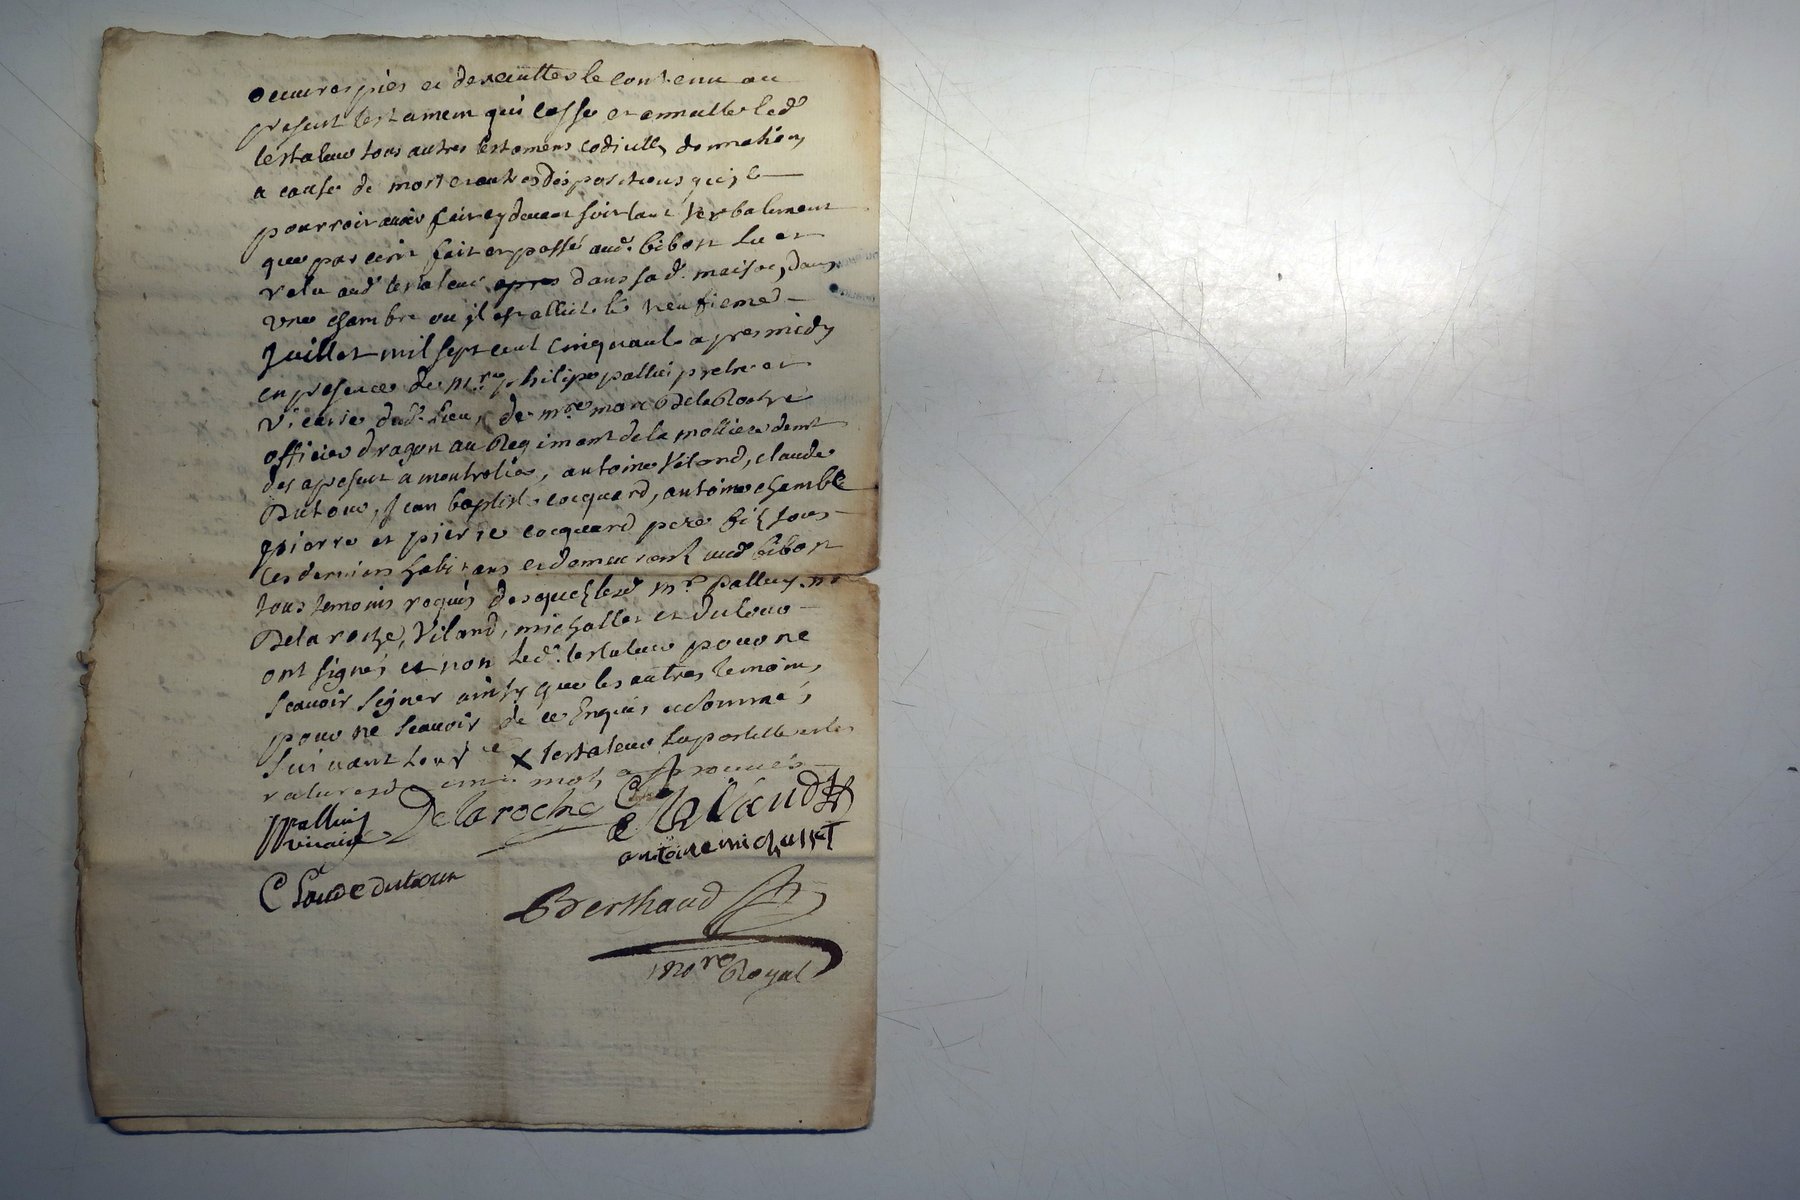 oeuvres pies et dexecutter le contenu au
present testament qui casse et annulle led.
testateur tous autres testamens codicilles donnations
a cause de mort et autres dispositions qu'il
pourroit avoir fait cy devant soit tant verbalement
que par écrit fait et passé aud. bibost lu et
relu aud. testateur apres dans sa d. maison, dans
une chambre ou il est allicté le neufieme
Juillet mil sept cent cinquante apres midy
en presence de m.re philipe pallui pretre et
vicaire dud. lieu, de m.re marc Delaroche
officier dragon au Regiment de la
des a present a montrotier, antoine Viland, claude
Dutour, Jean baptiste cocquard, antoine
pierre et pierre cocquard pere fils tous
ces derniers habitans et demeurant aud. bibost
tous temoins requis desquels led. m.r palluy m.r
Delaroche, Viland, michallet et Dutour
ont signés et non led. testateur pour ne
scavoir signer ainsy que les autres temoins
pour ne scavoir de ce Enquis et sommés
suivant x testateur
ratures mots approuvés
Pallui Delaroche Vilaud
vicaire antoine michallet
Claude dutour
Berthaud
no.re Royal